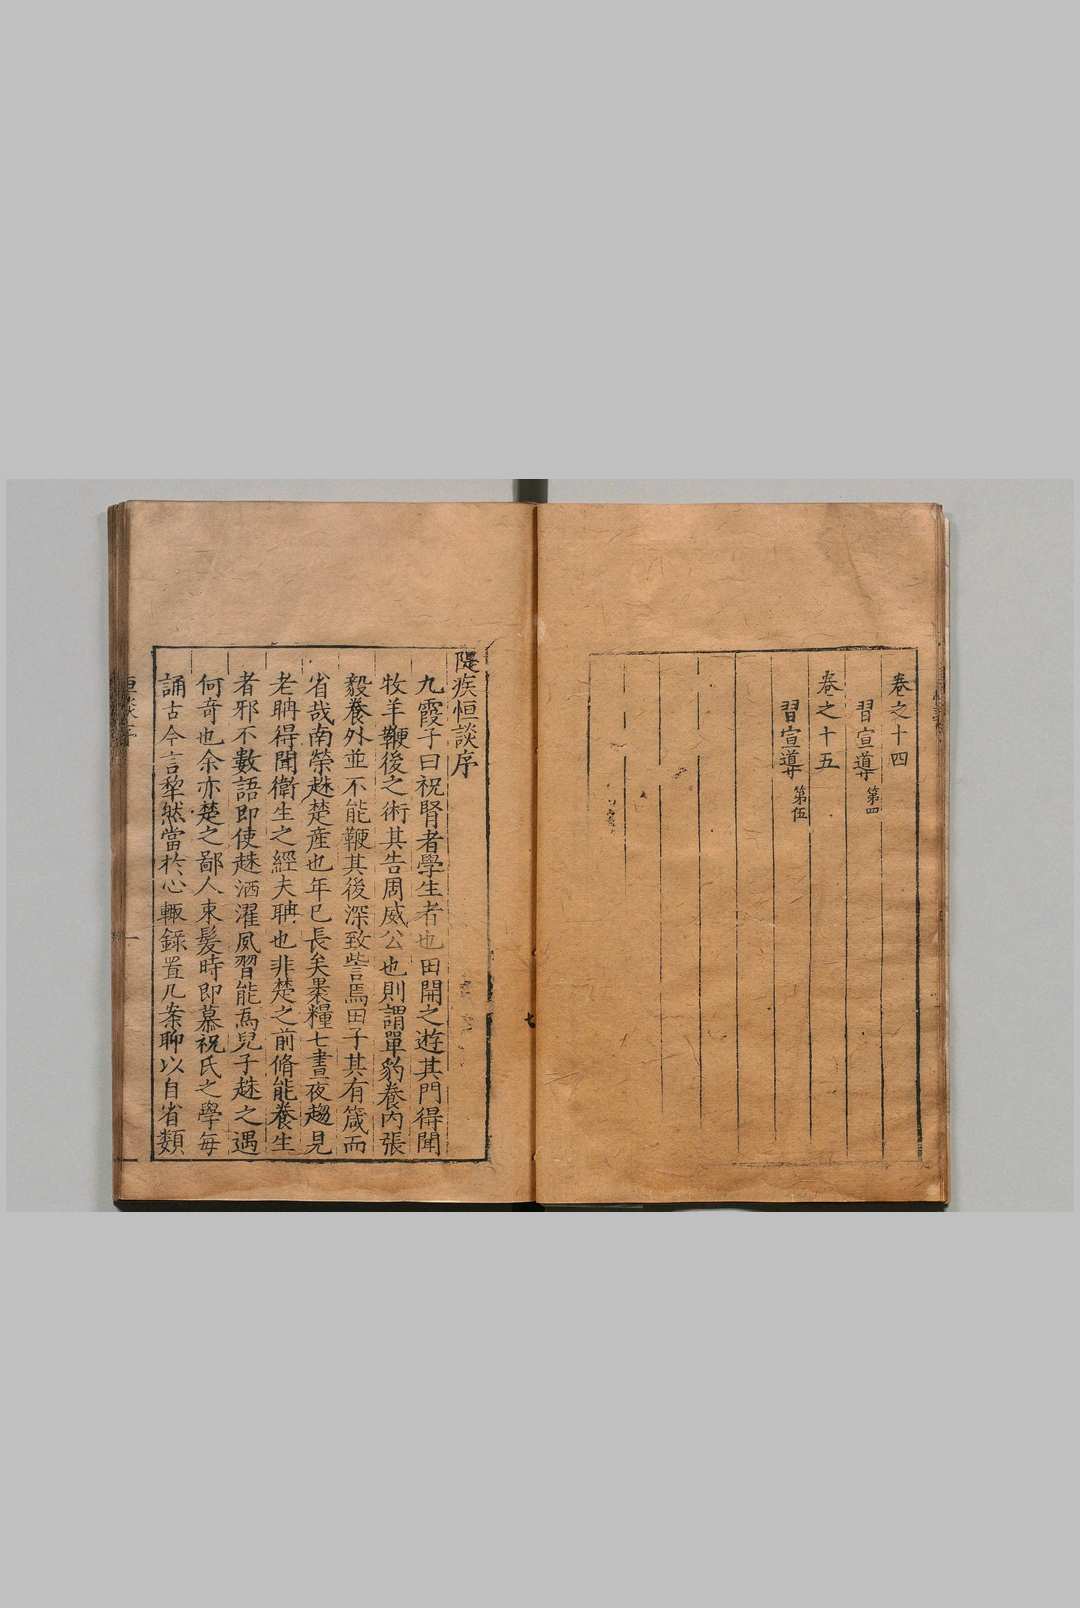 卷之十四
習宣導 第四
卷之十五
習宣導 第伍
隄疾恒談序
九霞子曰祝腎者學生者也田開之遊其門得聞
牧羊鞭後之術其告周威公也則謂單豹養內張
毅養外並不能鞭其後深致訾焉田子其有箴而
省哉南榮趎楚產也年已長矣裹糧七晝夜趨見
老聃得聞衛生之經夫聃也非楚之前脩能養生
者邪不數語即使趎洒濯夙習能為兒子趎之遇
何奇也余亦楚之鄙人束髮時即慕祝氏之學每
誦古今言犂然當於心輙錄置几案聊以自省類